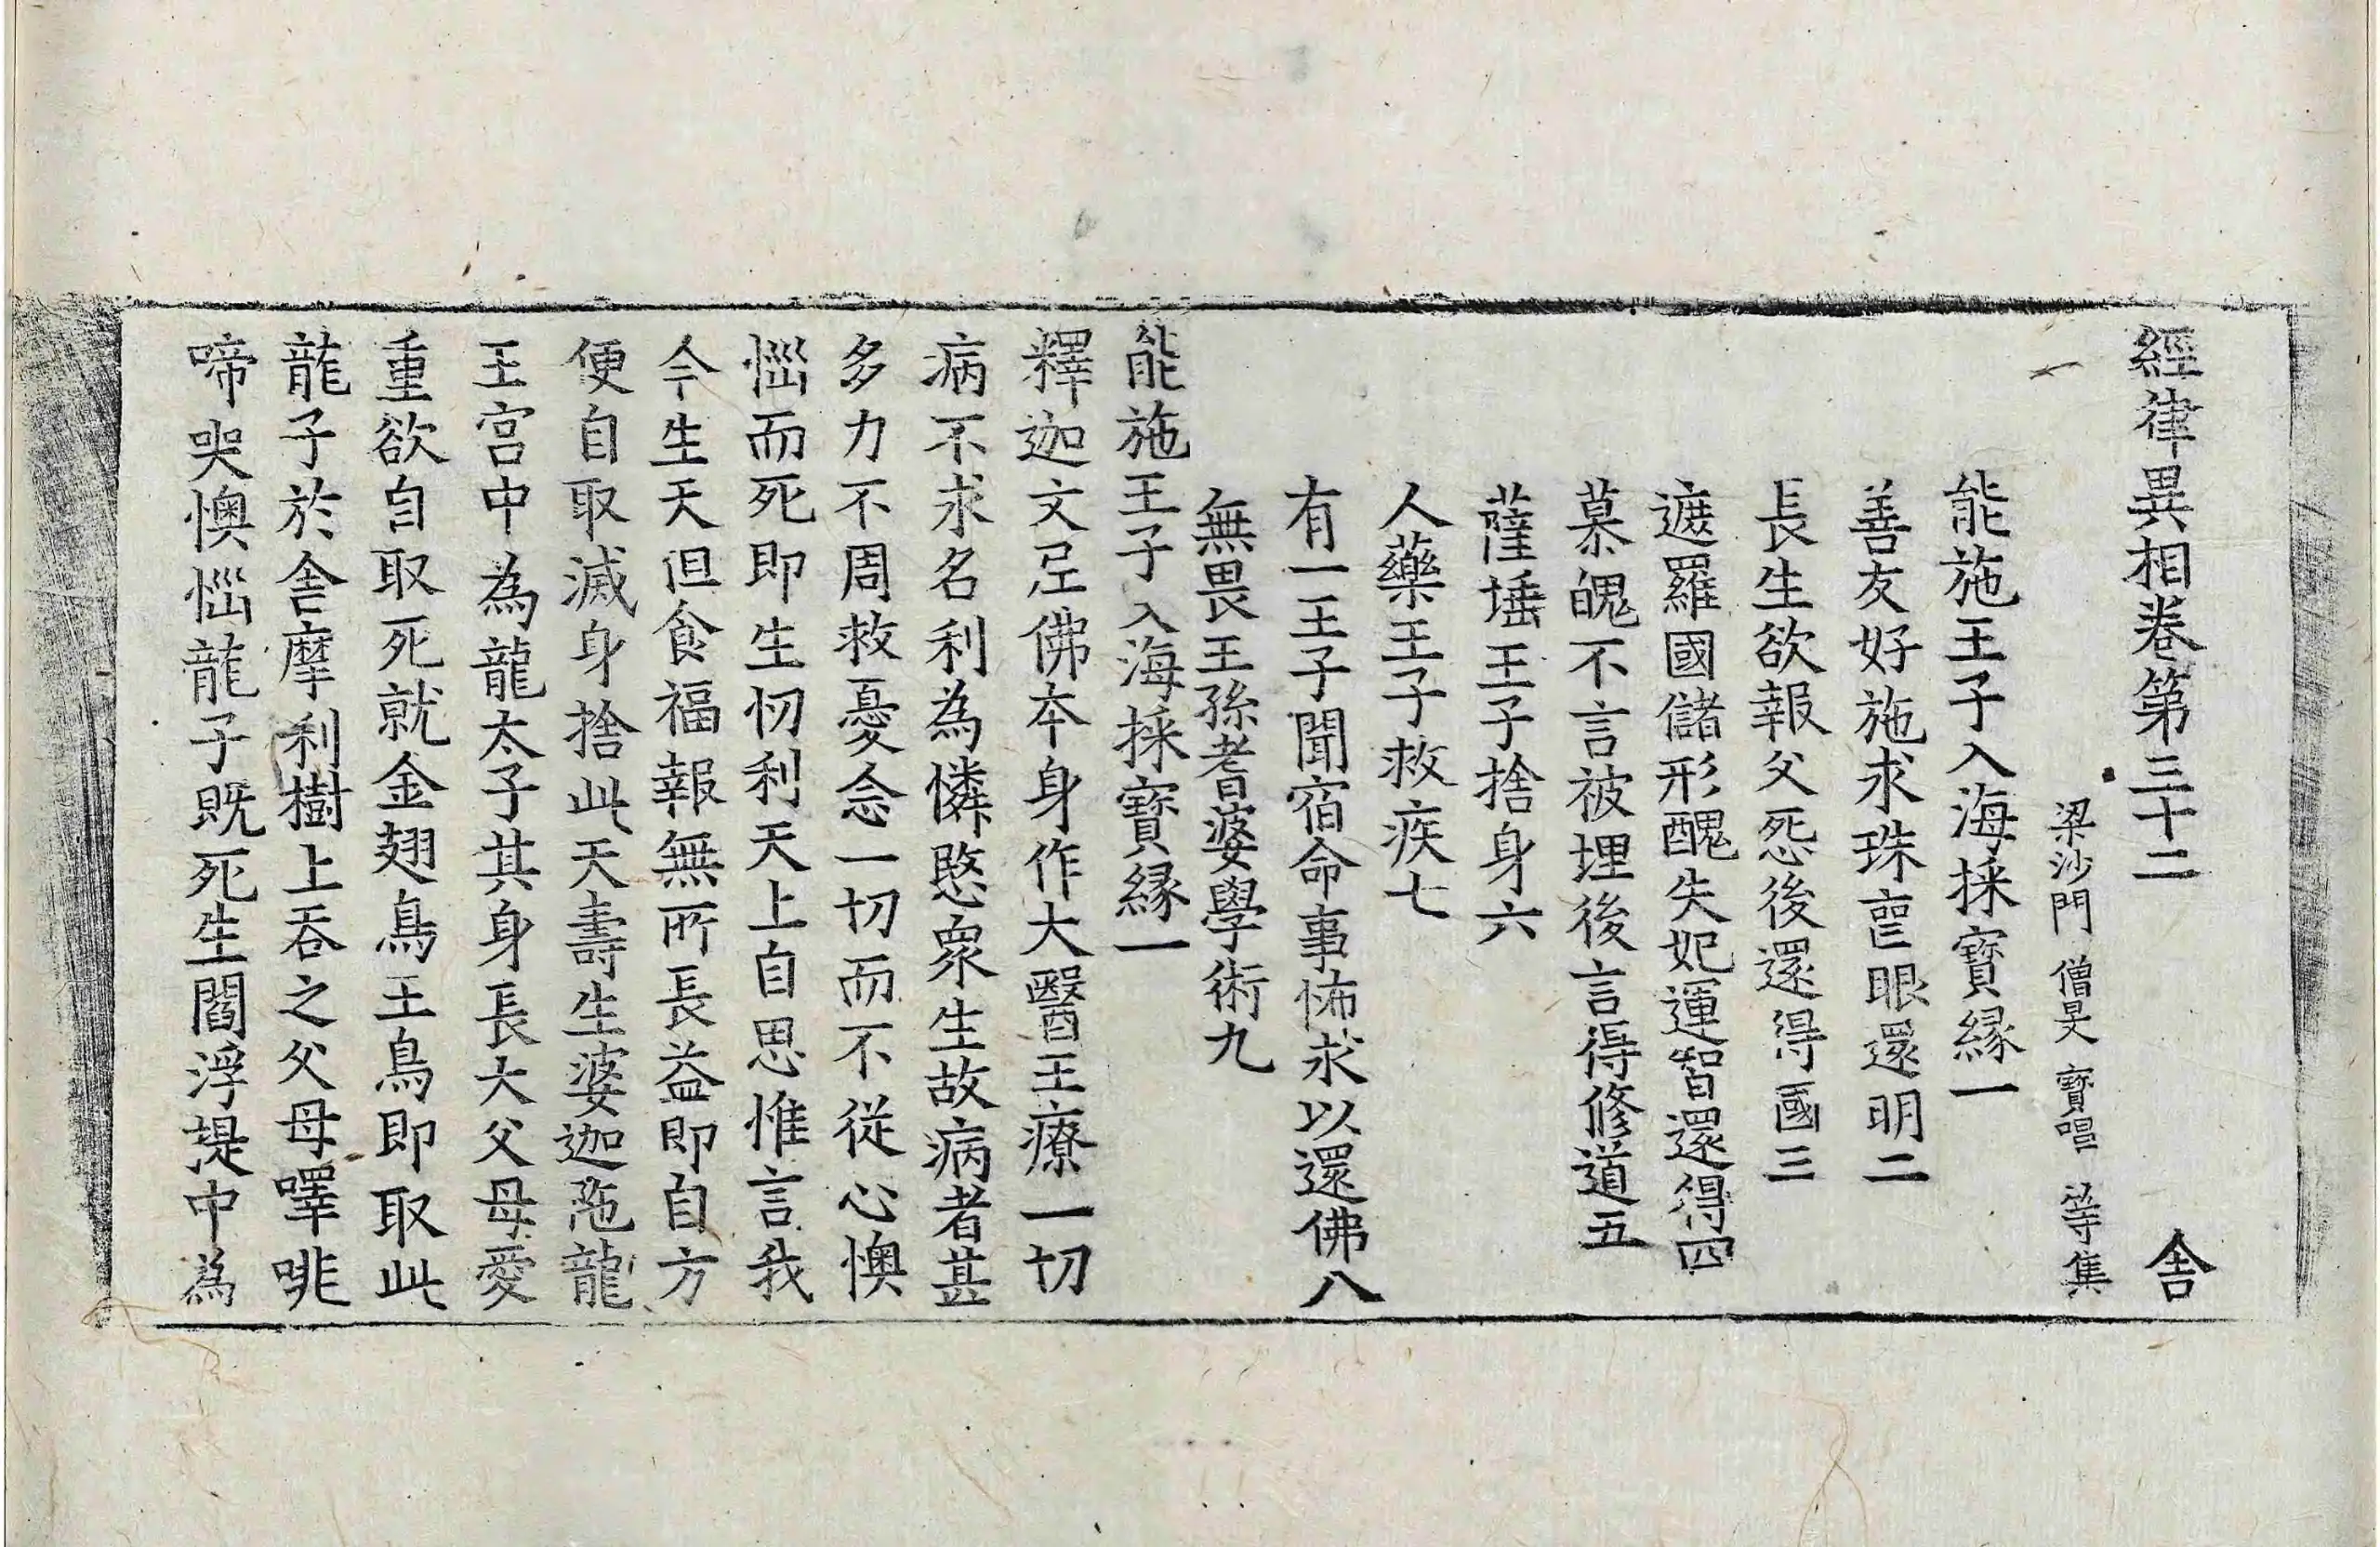 經律異相卷第三十二 舍
梁沙門 僧旻 寶唱 等集
能施王子入海採寶緣一
善友好施求珠喪眼還明二
長生欲報父怨後還得國三
遮羅國儲形醜失妃運智還得四
慕魄不言被埋後言得修道五
薩埵王子捨身六
人藥王子救疾七
有一王子聞宿命事怖求以還佛八
無畏王孫耆婆學術九
能施王子入海採寶緣一
釋迦文尼佛本身作大醫王療一切
病不求名利為憐愍眾生故病者甚
多力不周救憂念一切而不從心懊
惱而死即生忉利天上自思惟言我
今生天但食福報無所長益即自方
便自取滅身捨此天壽生婆迦陁龍
王宮中為龍太子其身長大父母愛
重欲自取死就金翅鳥王鳥即取此
龍子於舍摩利樹上吞之父母嘷咷
啼哭懊惱龍子既死生閻浮提中為